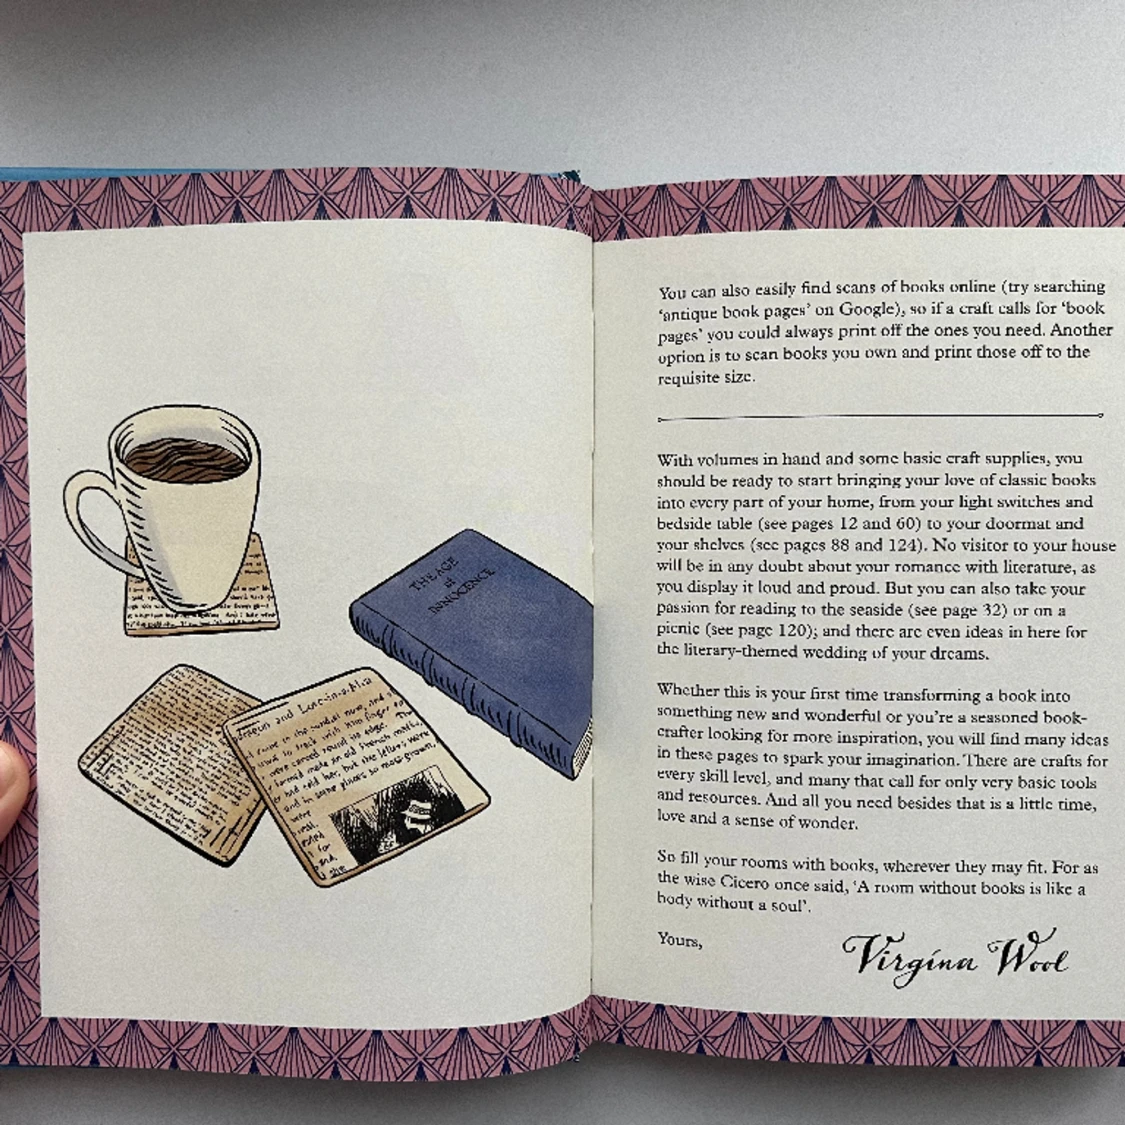 THE AGE
of
INNOCENCE
You can also easily find scans of books online (try searching
‘antique book pages’ on Google), so if a craft calls for ‘book
pages’ you could always print off the ones you need. Another
option is to scan books you own and print those off to the
requisite size.
With volumes in hand and some basic craft supplies, you
should be ready to start bringing your love of classic books
into every part of your home, from your light switches and
bedside table (see pages 12 and 60) to your doormat and
your shelves (see pages 88 and 124). No visitor to your house
will be in any doubt about your romance with literature, as
you display it loud and proud. But you can also take your
passion for reading to the seaside (see page 32) or on a
picnic (see page 120); and there are even ideas in here for
the literary-themed wedding of your dreams.
Whether this is your first time transforming a book into
something new and wonderful or you’re a seasoned book-
crafter looking for more inspiration, you will find many ideas
in these pages to spark your imagination. There are crafts for
every skill level, and many that call for only very basic tools
and resources. And all you need besides that is a little time,
love and a sense of wonder.
So fill your rooms with books, wherever they may fit. For as
the wise Cicero once said, ‘A room without books is like a
body without a soul’.
Yours,
Virgina Wool